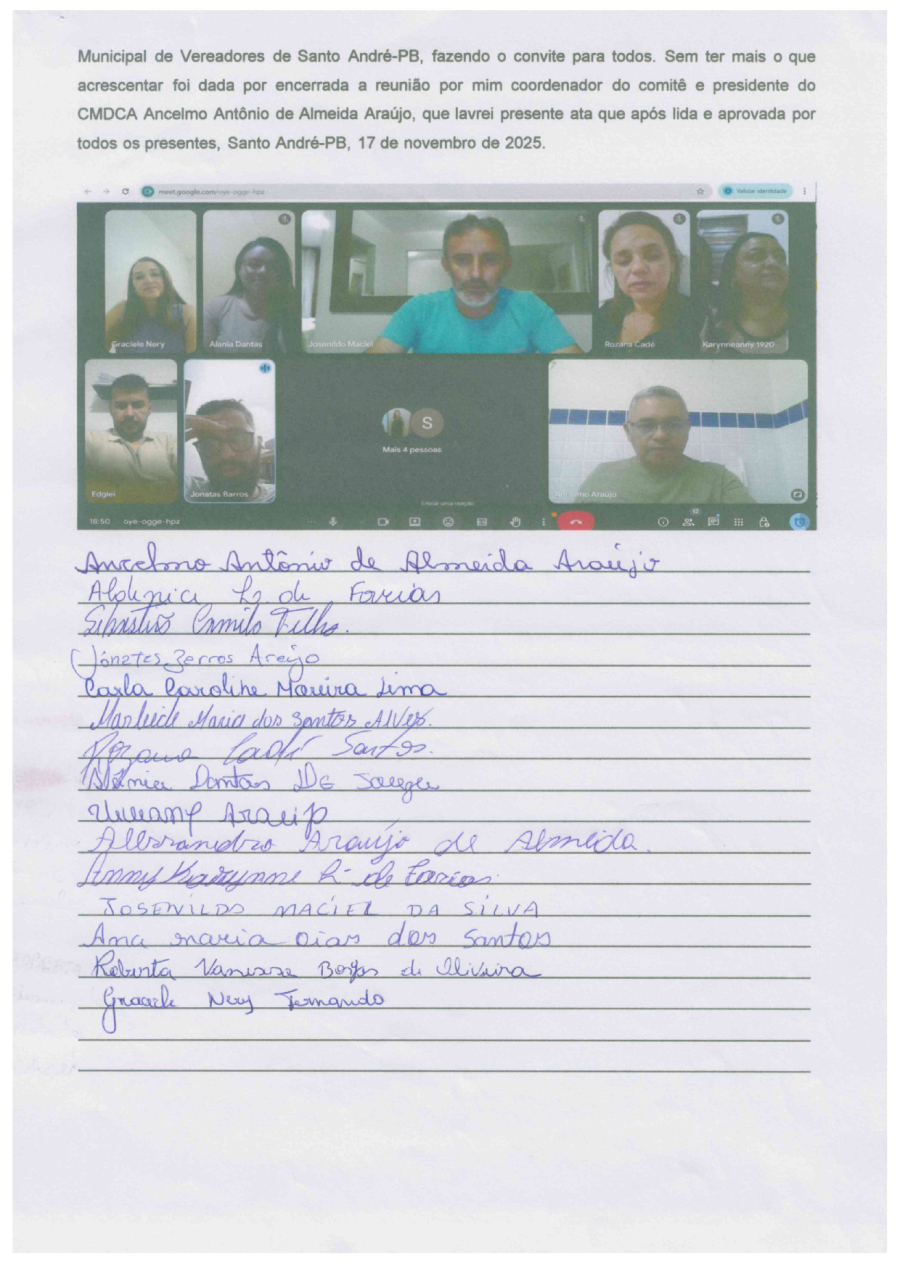 Municipal de Vereadores de Santo André-PB, fazendo o convite para todos. Sem ter mais o que
acrescentar foi dada por encerrada a reunião por mim coordenador do comitê e presidente do
CMDCA Ancelmo Antônio de Almeida Araújo, que lavrei presente ata que após lida e aprovada por
todos os presentes, Santo André-PB, 17 de novembro de 2025.
meet.google.com/oye-ogge-hpz
Validar identidade
Graciele Nery
Alania Dantas
Josenildo Maciel
Rozana Cadé
Karynneanny 1920
Edglei
Jonatas Barros
S
Mais 4 pessoas
Araújo
Enviar uma reação
18:50 oye-ogge-hpz
12
Ancelmo Antônio de Almeida Araújo
de Farias
Sebastião Camilo Filho.
Jónatas Barros Araújo
Carla Caroline Moreira Lima
Marleide Maria dos Santos Alves.
Rozana Cadé Santos.
Dantas De
Araújo
Alessandro Araújo de Almeida.
Anny Karynne de Farias.
JOSENILDO MACIEL DA SILVA
Ana maria Dias dos Santos
Roberta Vanessa Borges de Oliveira
Graciele Nery Fernando